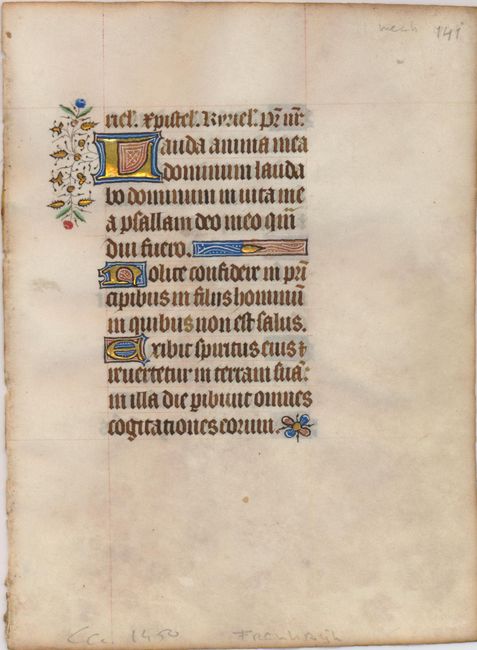 141
riel. Xpistel. Kyriel. pr̄ nr̄:
Lauda anima mea
dominum lauda
bo dominum in vita me
a psallam deo meo qm̄
diu fuero.
Nolite confidere in prī
cipibus in filijs hominū
in quibus non est salus.
Exibit spiritus eius ⁊
revertetur in terram suā:
in illa die ꝑibunt omnes
cogitationes eorum.
Cca. 1450 Frankreich